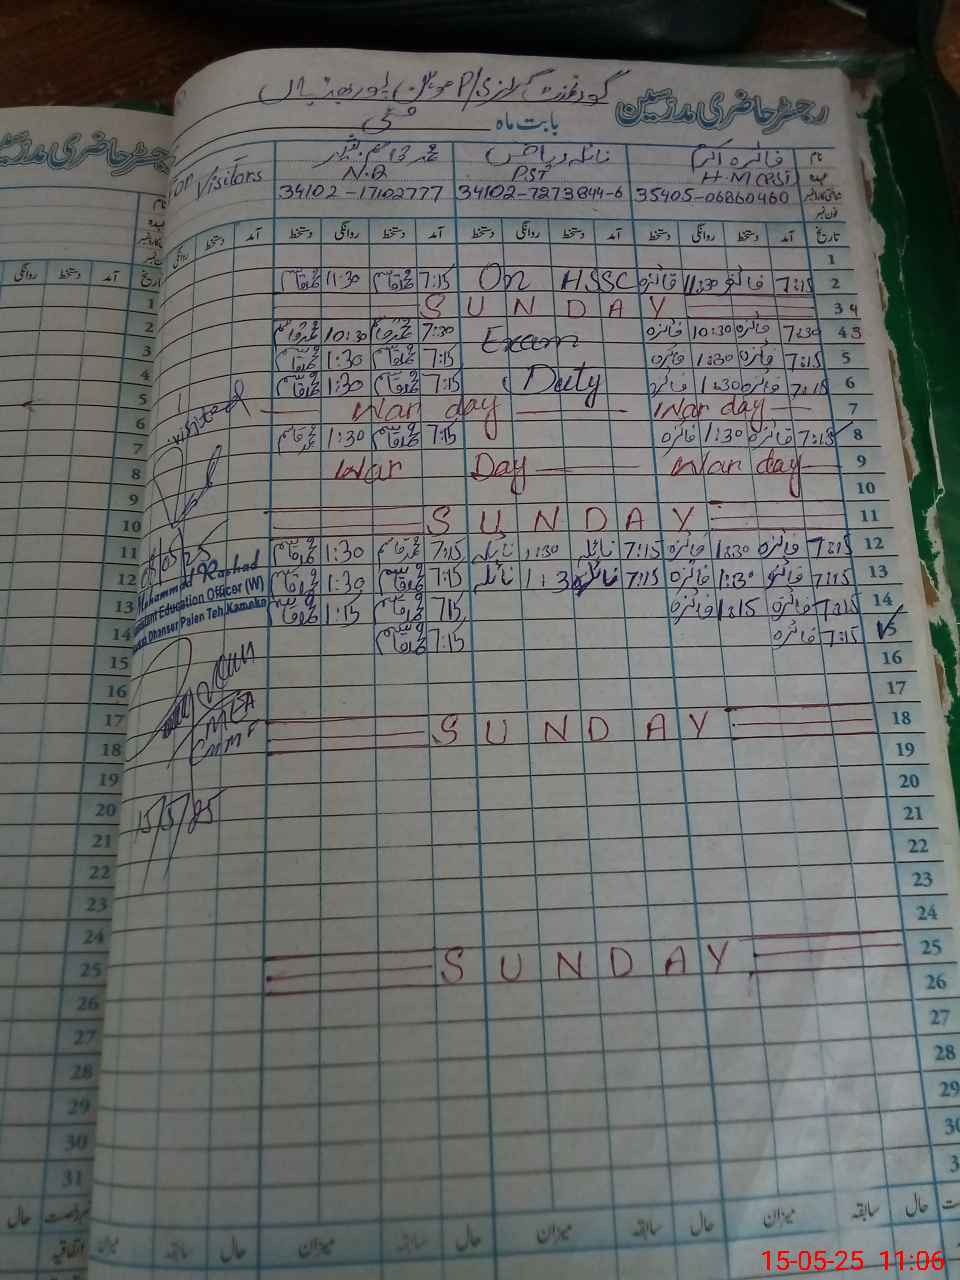 رجسٹر حاضری مدرسین
گورنمنٹ گرلز P/S
بابت ماہ مئی
نام فائزہ اکرم نائلہ ریاض محمد قاسم
عہدہ H.M (PST) PST N.Q For Visitors
35405-06860460 34102-7273844-6 34102-17102777
تاریخ آمد دستخط روانگی دستخط آمد دستخط روانگی دستخط آمد دستخط روانگی دستخط آمد دستخط روانگی
1
2 7:15 فائزہ 11:30 فائزہ On HSSC 7:15 محمد قاسم 11:30 محمد قاسم
3 4 SUNDAY
4 3 7:30 فائزہ 10:30 فائزہ Exam 7:30 محمد قاسم 10:30 محمد قاسم
5 7:15 فائزہ 1:30 فائزہ 7:15 محمد قاسم 1:30 محمد قاسم
6 7:15 فائزہ 1:30 فائزہ Duty 7:15 محمد قاسم 1:30 محمد قاسم
7 War day War day
8 7:15 فائزہ 1:30 فائزہ 7:15 محمد قاسم 1:30 محمد قاسم visited
9 War Day War day
10
11 SUNDAY
12 7:15 فائزہ 1:30 فائزہ 7:15 نائلہ 1:30 نائلہ 7:15 محمد قاسم 1:30 محمد قاسم
13 7:15 فائزہ 1:30 فائزہ 7:15 نائلہ 1:30 نائلہ 7:15 محمد قاسم 1:30 محمد قاسم
14 7:15 فائزہ 1:15 فائزہ 715 محمد قاسم 1:15 محمد قاسم
15 7:15 فائزہ 7:15 محمد قاسم
16
17
18 SUNDAY
19
20
21
22
23
24
25 SUNDAY
26
27
28
29
30
میزان سابقہ حال میزان سابقہ حال میزان سابقہ حال
Muhammad Rashad
Assistant Education Officer (W)
Dhanser Paien Teh, Kamoke
MEA
15/5/25
رجسٹر حاضری مدرسین
تاریخ آمد دستخط روانگی
1
2
3
4
5
6
7
8
9
10
11
12
13
14
15
16
17
18
19
20
21
22
23
24
25
26
27
28
29
30
31
حال
اتفاقیہ
15-05-25 11:06